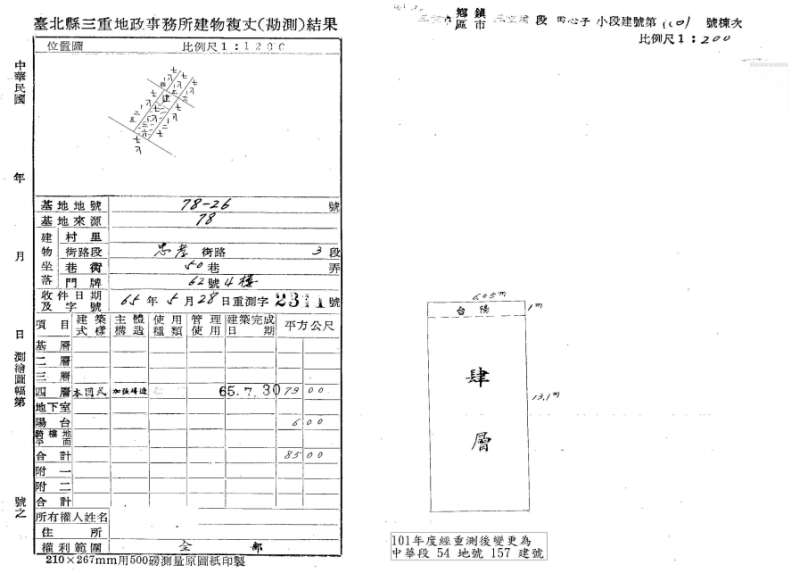 臺北縣三重地政事務所建物複丈(勘測)結果
位置圖 比例尺1:1200
中華民國 年 月 日測繪圖幅第 號之
基地地號 78-26 號
基地來源 78
建物坐落
村里
街路段 忠孝 街路 3段
巷衖 50巷 弄
門牌 62號4樓
收件日期及字號 65年5月28日重測字 號
項目 建築式樣 主體構造 使用種類 管理使用 建築完成日期 平方公尺
基層
二層
三層
四層 本國式 加強磚造 65.7.30 79 00
地下室
陽台 6 00
騎樓地平面
合計 85 00
附一
附二
合計
所有權人姓名
住所
權利範圍 全部
210×267mm用500磅測量原圖紙印製
鄉鎮區市 段 田心子 小段建號第 號棟次
比例尺1:200
6.05m
台陽
1m
肆
層
13.1m
101年度經重測後變更為
中華段 54 地號 157 建號